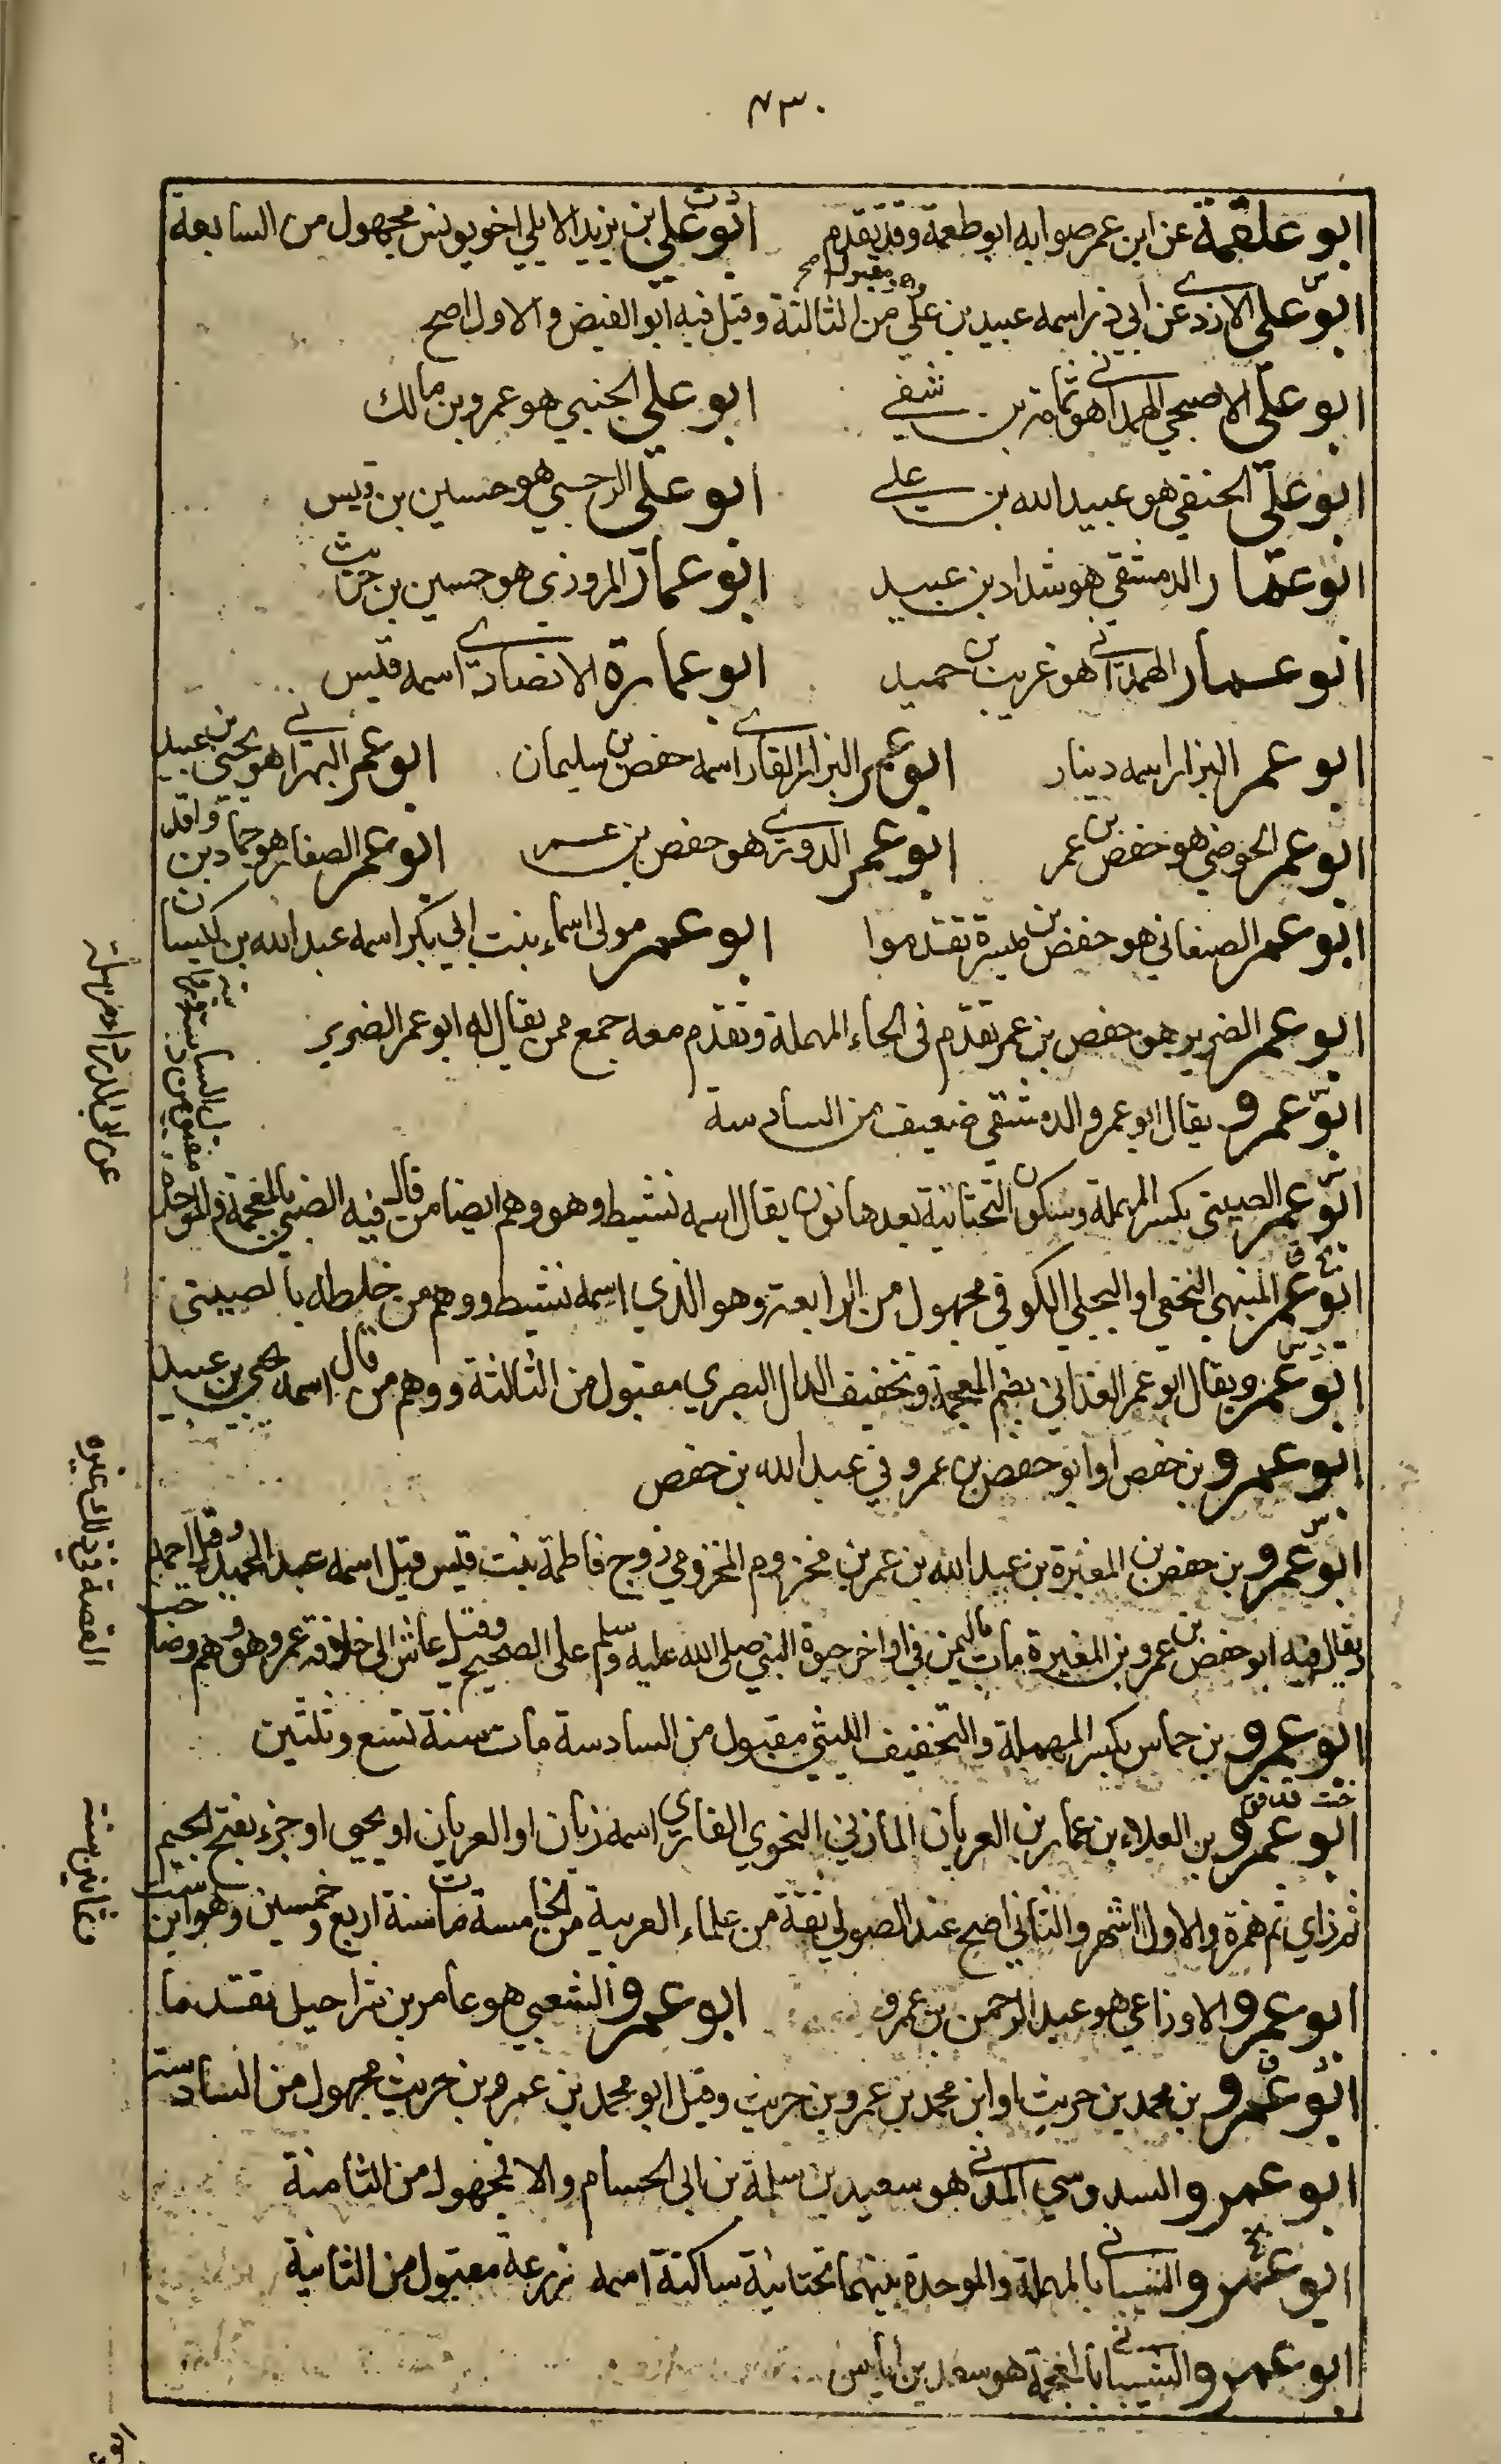 ٤٣٠
ابو علقمة عن ابن عمر صوابه ابو طعمة وقد تقدم ابو علي بن يزيد الايلي اخو يونس مجهول من السابعة
ابو علي الازدي عن أبي ذر اسمه عبيد بن علي مقبول من الثالثة وقيل فيه ابو الفيض والاول اصح
ابو علي الاصبحي الهمداني هو ثمامة بن شفي ابو علي الجنبي هو عمرو بن مالك
ابو علي الحنفي هو عبيد الله بن علي ابو علي الرحبي هو حسين بن قيس
ابو عمار الدمشقي هو شداد بن عبيد ابو عمار المروزي هو حسين بن حريث
ابو عمار الهمداني هو عريب بن حميد ابو عمارة الانصاري اسمه قيس
ابو عمر البزار اسمه دينار ابو عمر البزاز القاري اسمه حفص بن سليمان ابو عمر البهراني هو يحيى بن عبيد
ابو عمر الحوضي هو حفص بن عمر ابو عمر الدوري هو حفص بن عمر ابو عمر الصفار هو حماد بن واقد
ابو عمر الصنعاني هو حفص بن ميسرة تقدموا ابو عمر مولى اسماء بنت ابي بكر اسمه عبد الله بن كيسان
ابو عمر الضرير هو حفص بن عمر تقدم في الحاء المهملة وتقدم معه جمع ممن يقال له ابو عمر الضرير
ابو عمرو يقال ابو عمرو الدمشقي ضعيف من السادسة
ابو عمر الصيني بكسر المهملة وسكون التحتانية بعدها نون يقال اسمه نشيط وهو وهم ايضا من قال فيه الضبي بالمعجمة والموحدة
ابو عمر المنبهي النخعي او البجلي الكوفي مجهول من الرابعة وهو الذي اسمه نشيط ووهم من خلطه بالصيني
ابو عمر ويقال ابو عمر الغداني بضم المعجمة وتخفيف الدال البصري مقبول من الثالثة ووهم من قال اسمه يحيى بن عبيد
ابو عمرو بن حفص او ابو حفص بن عمرو في عبد الله بن حفص
ابو عمرو بن حفص بن المغيرة بن عبد الله بن عمر بن مخزوم المخزومي زوج فاطمة بنت قيس قيل اسمه عبد الحميد وقيل احمد
يقال فيه ابو حفص بن عمرو بن المغيرة مات باليمن في اواخر حيوة النبي صلى الله عليه وسلم على الصحيح وقيل عاش الى خلافة عمرو هو وهم وصاحب
ابو عمرو بن حماس بكسر المهملة والتخفيف الليثي مقبول من السادسة مات سنة تسع وثلثين
ابو عمرو بن العلاء بن عمار بن العريان المازني النحوي القاري اسمه زبان او العريان او يحيى او جزء بفتح الجيم
ثم زاي ثم همزة والاول اشهر والثاني اصح عند الصولي ثقة من علماء العربية من الخامسة مات سنة اربع وخمسين وهو ابن ست
ابو عمرو الاوزاعي هو عبد الرحمن بن عمرو ابو عمرو الشعبي هو عامر بن شراحيل تقدما
ابو عمرو بن محمد بن حريث او ابن محمد بن عمرو بن حريث وقيل ابو محمد بن عمرو بن حريث مجهول من السادسة
ابو عمرو السدوسي المدني هو سعيد بن سلمة بن ابي الحسام والا فمجهول من الثامنة
ابو عمرو السيباني بالمهملة والموحدة بينهما تحتانية ساكنة اسمه زرعة مقبول من الثانية
ابو عمرو الشيباني بالمعجمة هو سعد بن اياس
القصة في ذلك غيره
وثمانين سنة